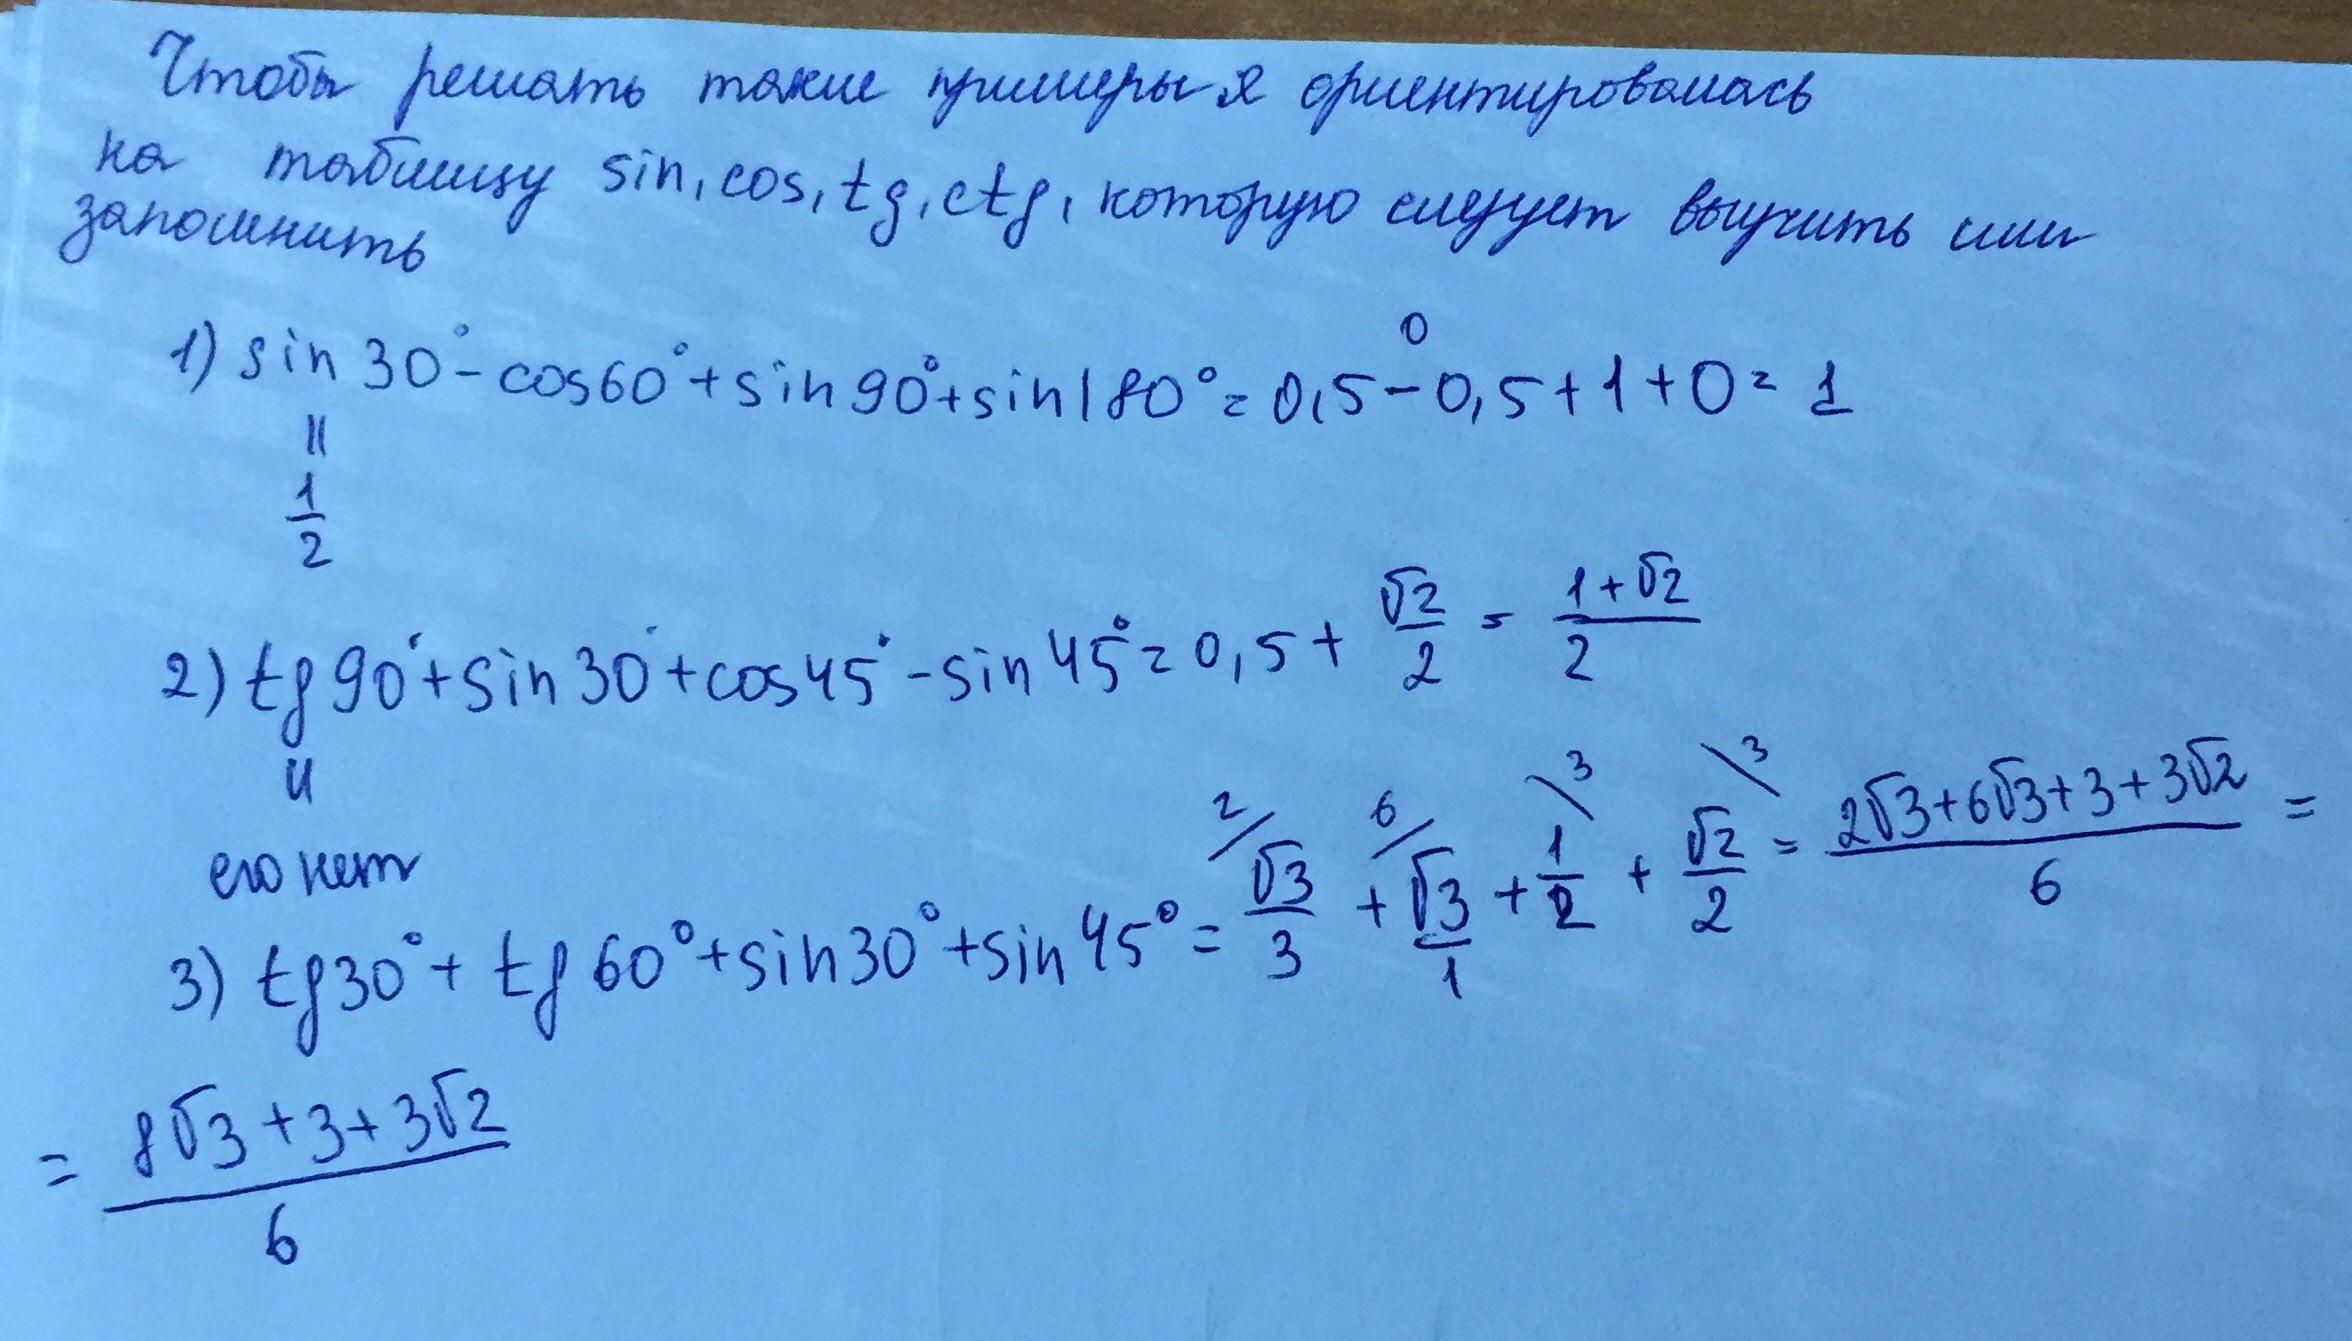 Чтобы решать такие примеры я ориентировалась
на таблицу sin, cos, tg, ctg, которую следует выучить или
запомнить
0
1) sin 30° - cos60° + sin 90° + sin 180° = 0,5 - 0,5 + 1 + 0 = 1
=
1/2
2) tg 90° + sin 30° + cos 45° - sin 45° = 0,5 + √2/2 = (1+√2)/2
=
его нет
2 6 3 3
3) tg30° + tg 60° + sin30° + sin 45° = √3/3 + √3/1 + 1/2 + √2/2 = (2√3+6√3+3+3√2)/6 =
= (8√3+3+3√2)/6